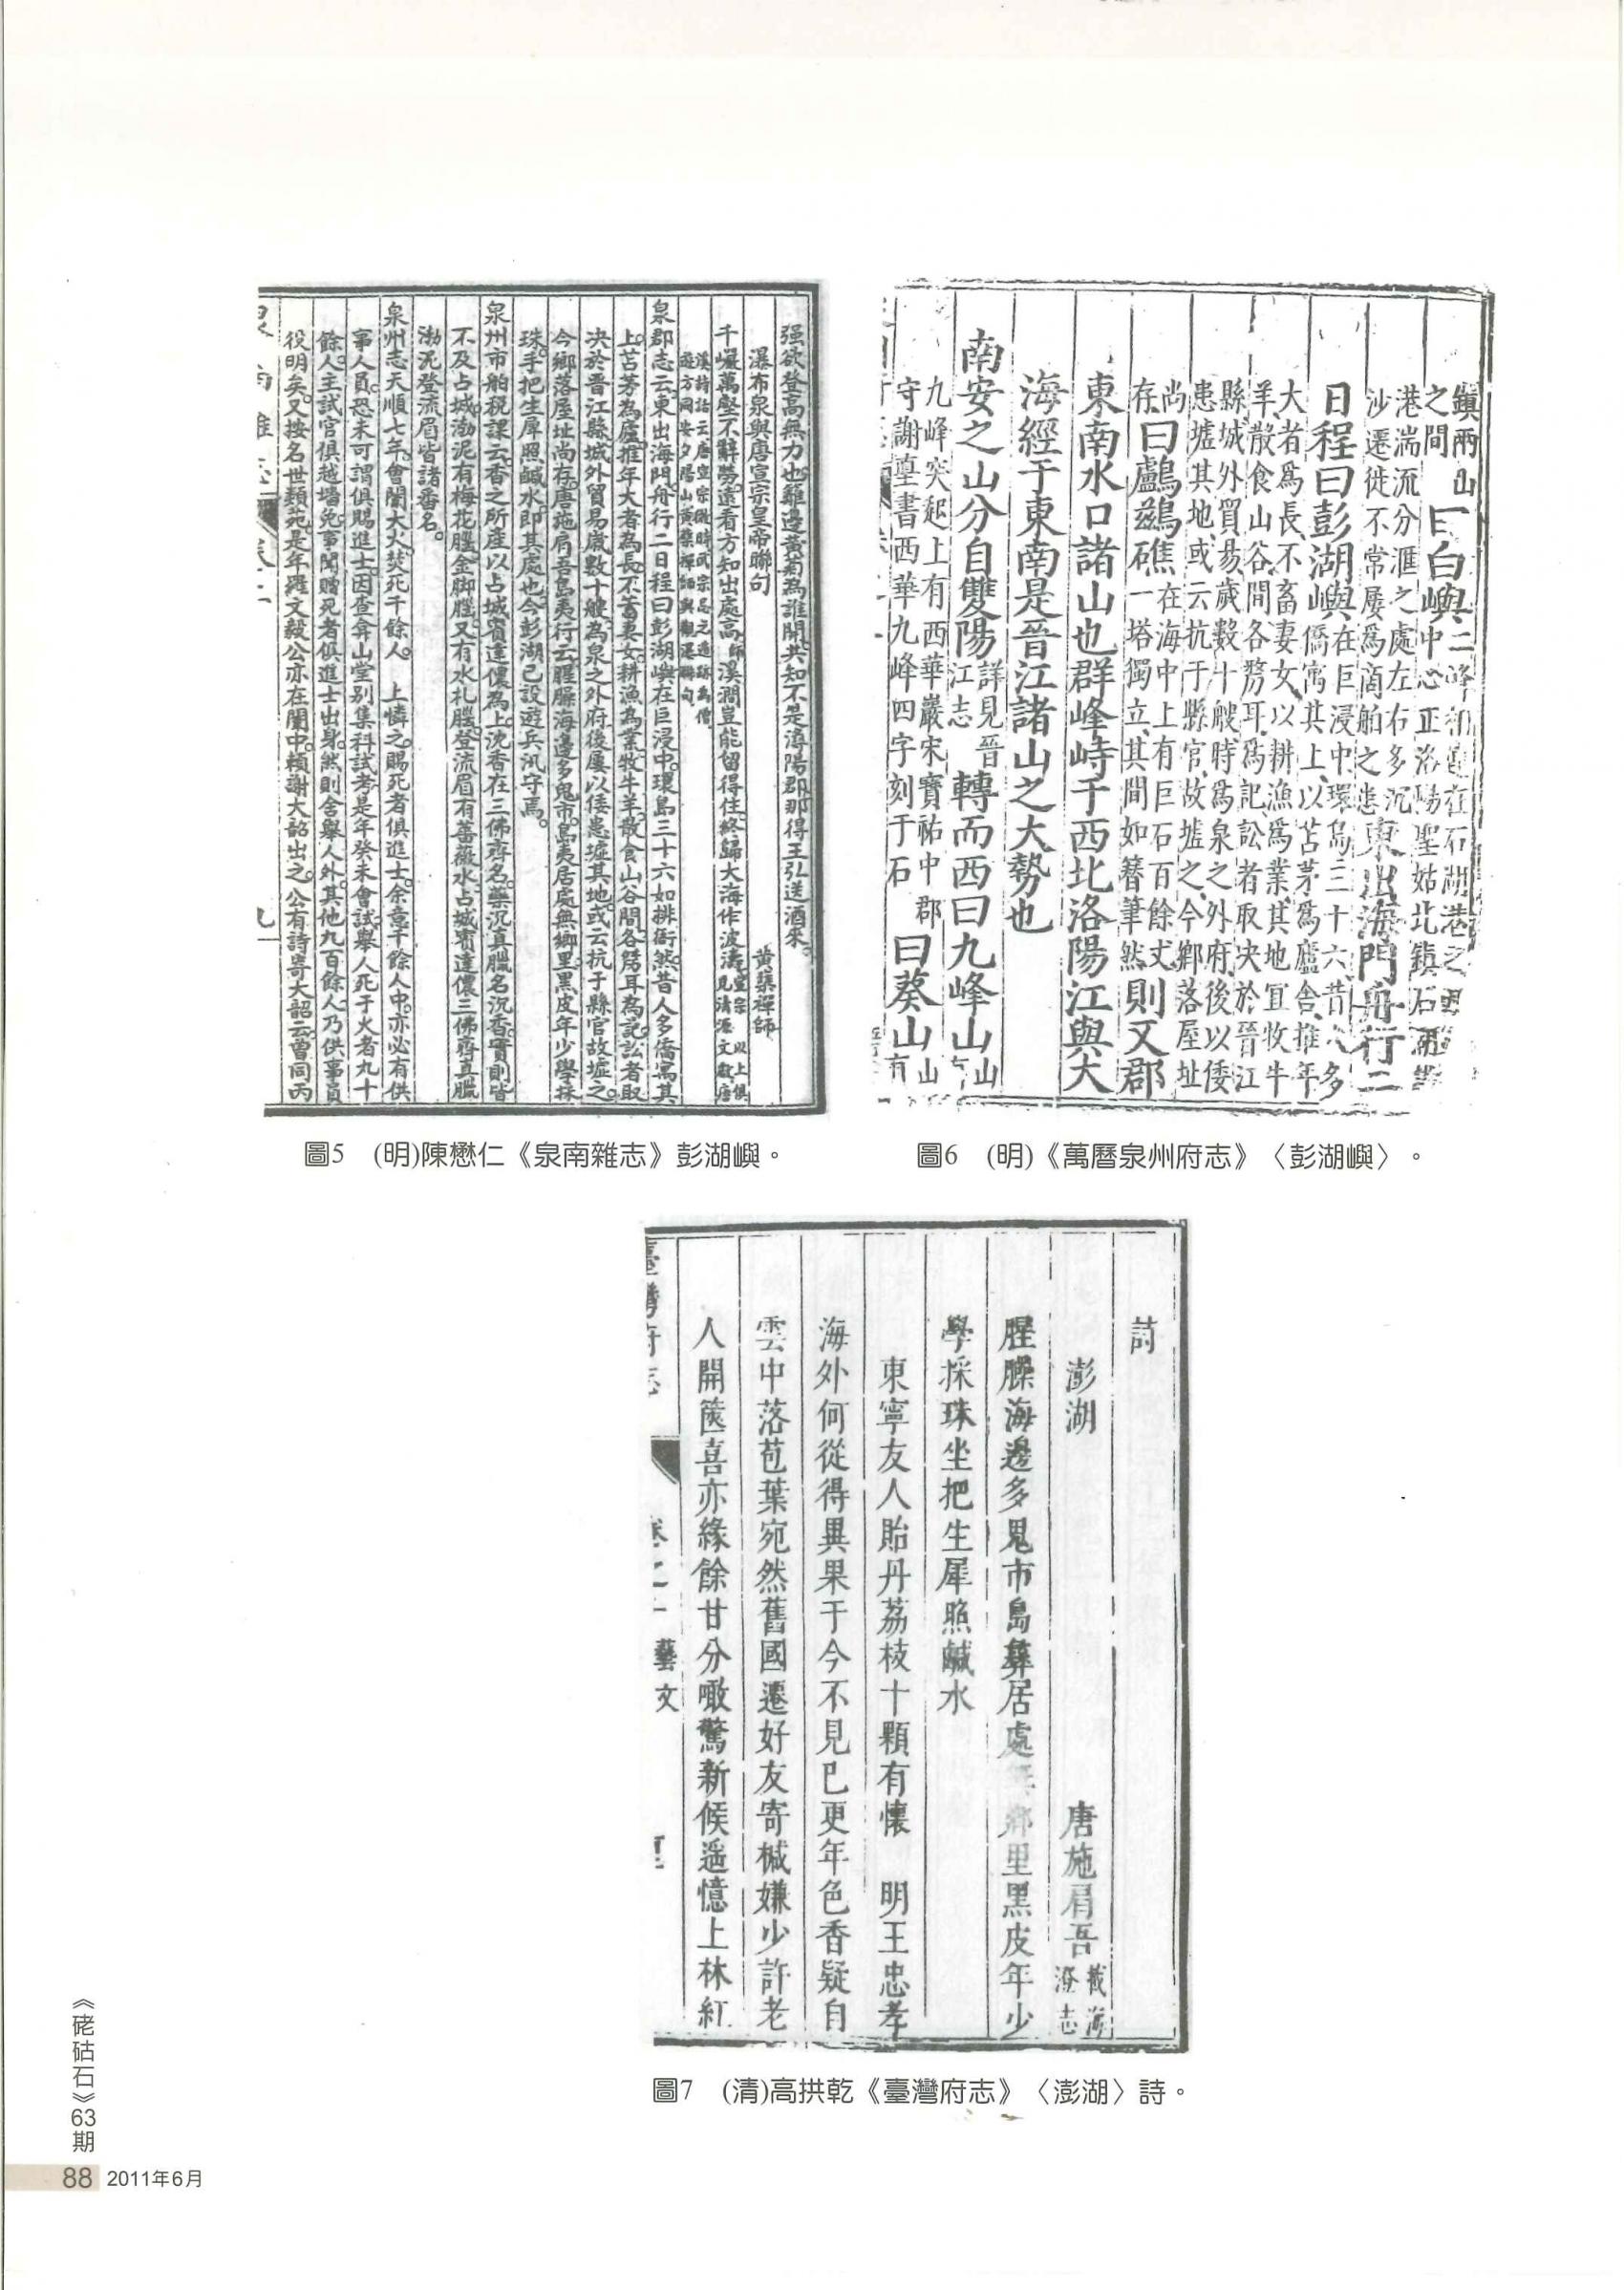 强欲登高無力也籬邊黃菊為誰開共知不是潯陽郡那得王弘送酒來
瀑布泉與唐宣宗皇帝聯句
黃蘗禪師
千巖萬壑不辭勞遠看方知出處高師溪澗豈能留得住終歸大海作波濤宣宗
泉郡志云東出海門舟行二日程曰彭湖嶼在巨浸中環島三十六如排衙然昔人多僑寓其
上苫茅為廬推年大者為長不畜妻女耕漁為業牧牛羊散食山谷間各剺耳為記訟者取
決於晉江縣城外貿易歲數十艘為泉之外府後屢以倭患墟其地或云抗于縣官故墟之
今鄉落屋址尚存唐施肩吾島夷行云腥臊海邊多鬼市島夷居處無鄉里黑皮年少學採
珠手把生犀照鹹水即其處也今彭湖已設遊兵汛守焉
泉州市舶稅課云香之所產以占城賓達儂為上沈香在三佛齊名藥沉真臘名沉香實則皆
不及占城渤泥有梅花腦金脚腦又有水札腦登流眉有薔薇水占城賓達儂三佛齊真臘
渤泥登流眉皆諸番名
泉州志天順七年會闈大火焚死千餘人 上憐之賜死者俱進士余意千餘人中亦必有供
事人員恐未可謂俱賜進士因查弇山堂別集科試考是年癸未會試舉人死于火者九十
餘人主試官俱越墻免事聞贈死者俱進士出身然則舍舉人外其他九百餘人乃供事員
役明矣又按名世類苑是年羅文毅公亦在闈中賴謝大韶出之公有詩寄大韶云曾同丙
九
圖5 (明)陳懋仁《泉南雜志》彭湖嶼。
鎮兩山
之間
曰白嶼
港湍流分滙之處左右多沉
沙遷徙不常屢為商舶之患
東出海門舟行二
日程曰彭湖嶼在巨浸中環島三十六昔人多
僑寓其上以苫茅為廬舍推年
大者為長不畜妻女以耕漁為業其地宜牧牛
羊散食山谷間各剺耳為記訟者取決於晉江
縣城外貿易歲數十艘時為泉之外府後以倭
患墟其地或云抗于縣官故墟之今鄉落屋址
尚存
曰鸕鶿礁在海中上有巨石百餘丈
一塔獨立其間如簪筆然
則又郡
東南水口諸山也群峰峙于西北洛陽江與大
海經于東南是晉江諸山之大勢也
南安之山分自雙陽詳見晉江志
轉而西曰九峰山
九峰突起上有西華巖宋寶祐中郡
守謝堇書西華九峰四字刻于石
曰葵山
圖6 (明)《萬曆泉州府志》〈彭湖嶼〉。
詩
澎湖 唐施肩吾載海澄志
腥臊海邊多鬼市島彝居處無鄉里黑皮年少
學採珠坐把生犀照鹹水
東寧友人貽丹荔枝十顆有懷 明王忠孝
海外何從得異果于今不見已更年色香疑自
雲中落苞葉宛然舊國遷好友寄椷嫌少許老
人開篋喜亦緣餘甘分噉驚新候遥憶上林紅
臺灣府志 卷之十 藝文
圖7 (清)高拱乾《臺灣府志》〈澎湖〉詩。
《硓𥑮石》63期
88 2011年6月